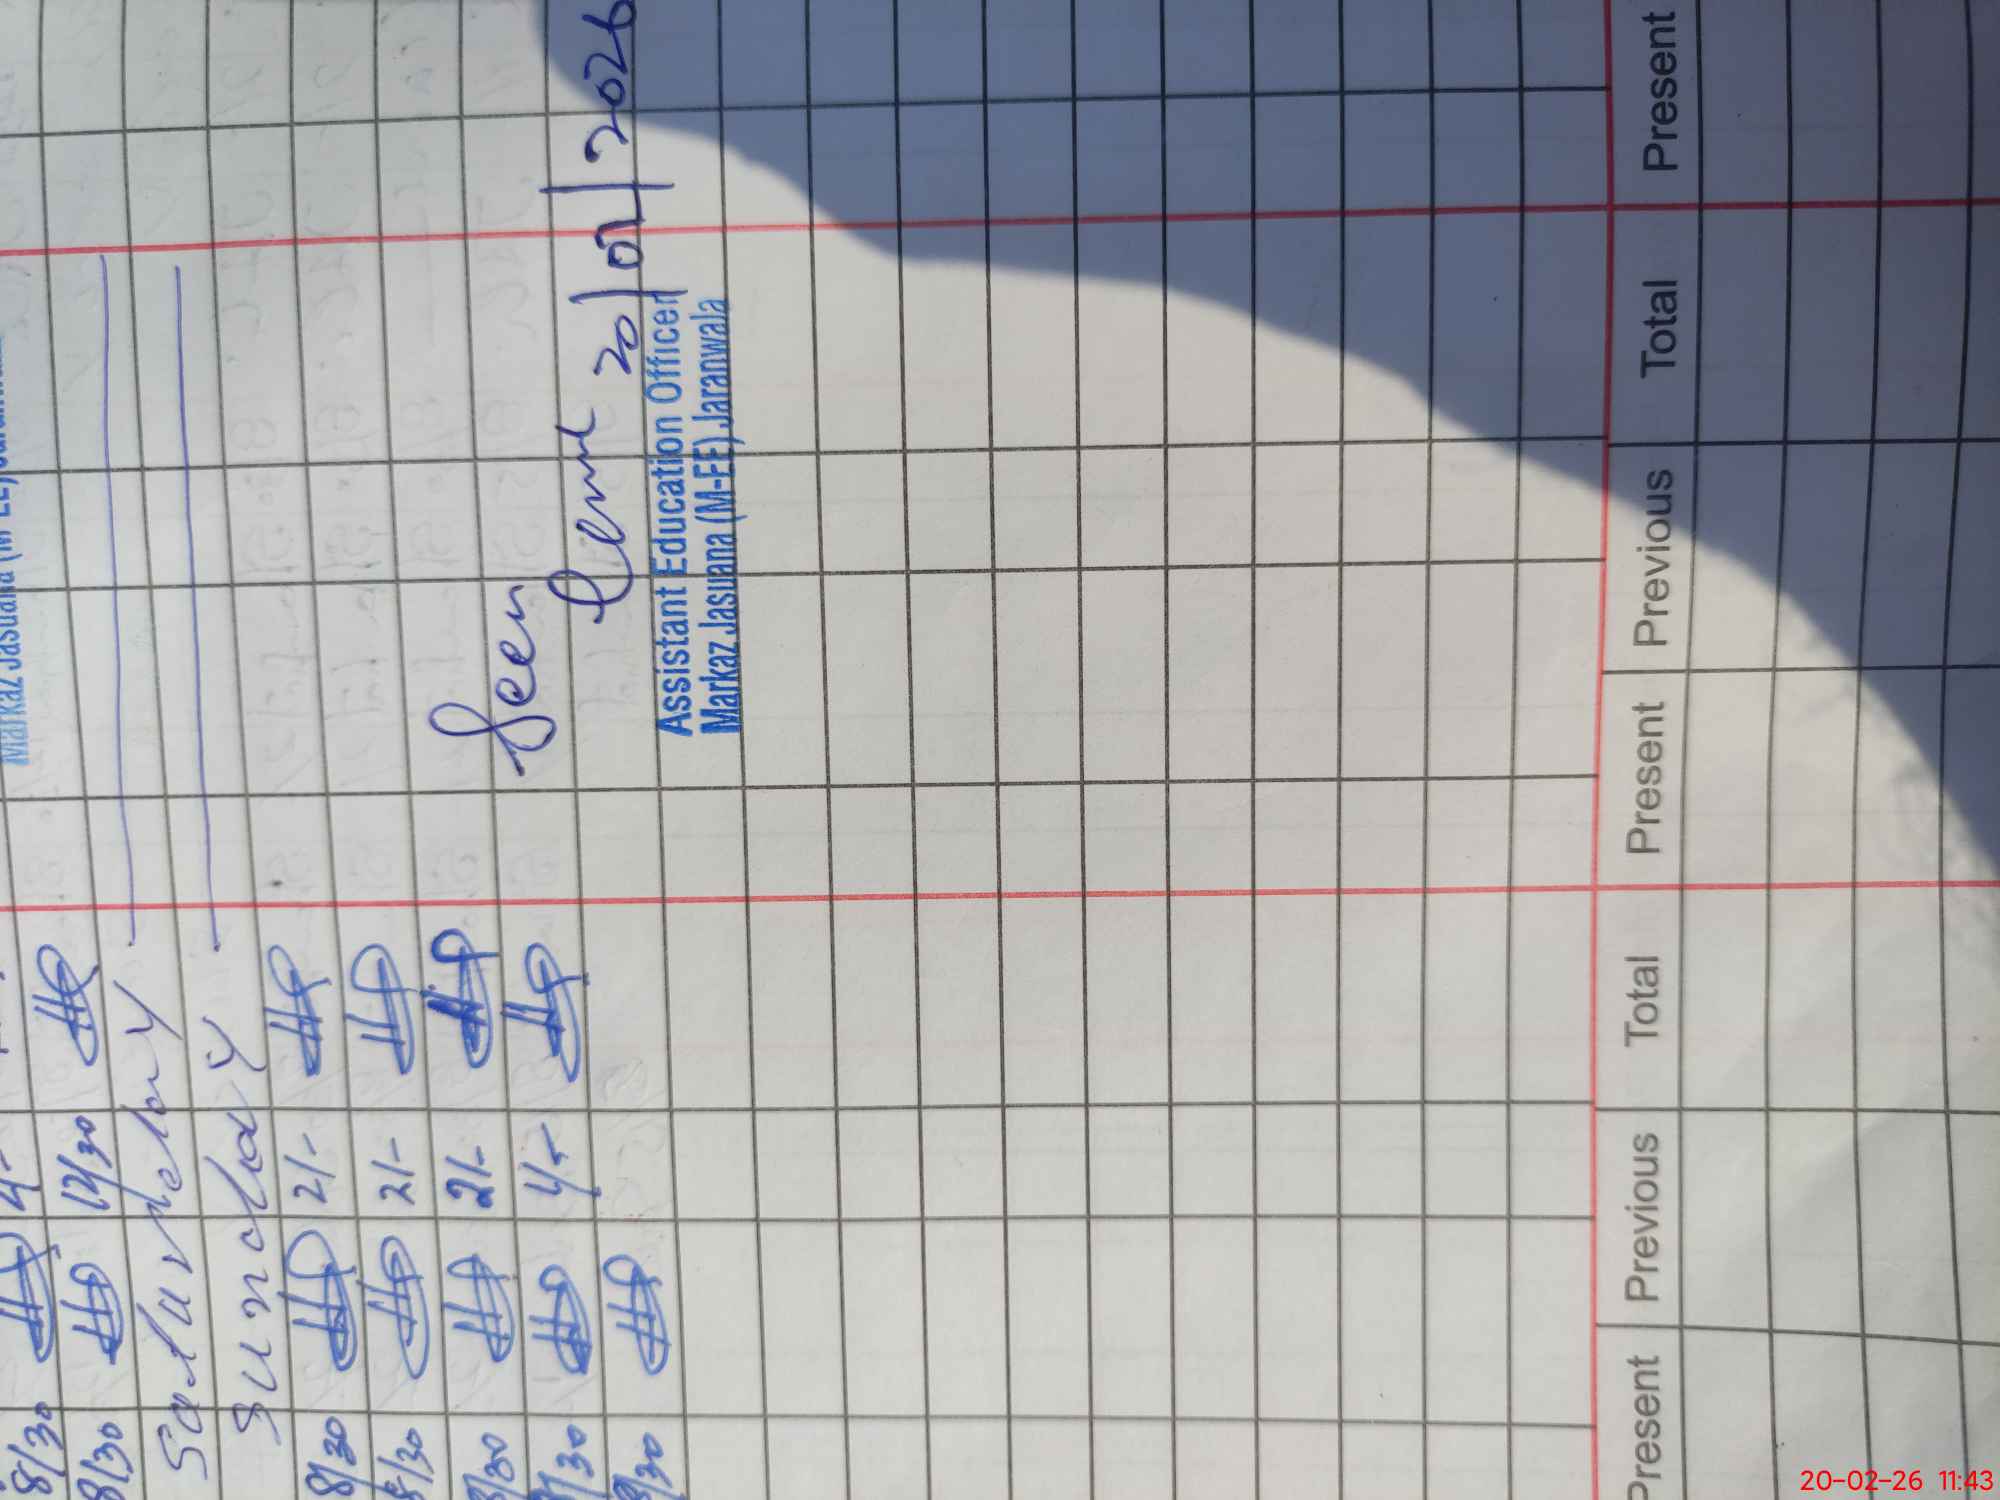 Markaz Jasuana (M-EE)
8/30 4-
8/30 12/30
Saturday
Sunday
8/30 2/-
8/30 2/-
8/30 2/-
8/30 4/-
8/30
Seen
20/02/2026
Assistant Education Officer
Markaz Jasuana (M-EE) Jaranwala
Present Previous Total Present Previous Total Present
20-02-26 11:43